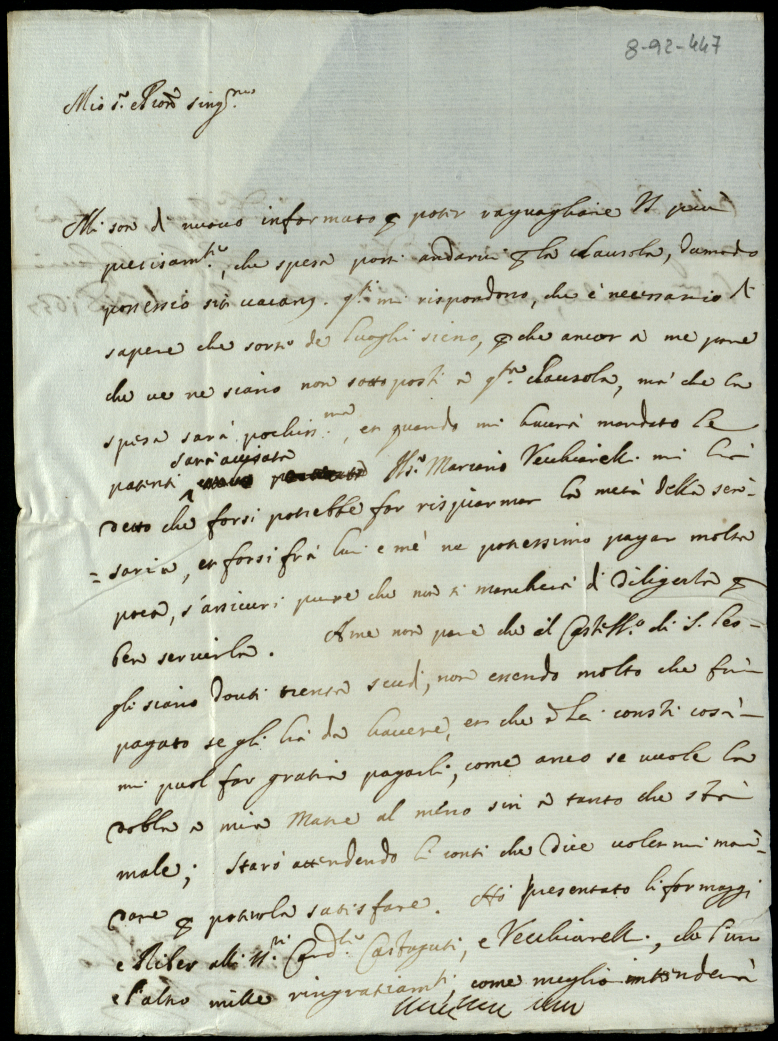 8-92-447
Mio s.r e Pron sing.mo
Mi son di nuovo informato p poter raguagliare più
precisam.te, che spesa possi andarvi p la clausola, dumodo
possessio sit vacans. q.li mi rispondono, che è necessario
sapere che sorte de luoghi sieno, p che ancor à me pare
che ve ne siano non sottoposti à q.ta clausola, mà che la
spesa sarà pochiss.ma, et quando mi haurà mandato le
patenti sarà avisata Ms.r Mariano Vecchiarelli mi hà
detto che forsi potrebbe far risparmar la metà della sen-
=saria, et forsi frà lui e mè ne potessimo pagar molto
poca, s'assicuri pure che non si mancherà di diligenza p
ben servirla. A me non pare che al Castell.o di S. Leo-
gli siano douti trenta scudi, non essendo molto che fù
pagato se gli hà da havere, et che à Lei consti così
mi puol far gratia pagarli, come anco se vuole la
dobla à mia Matre al meno sin à tanto che stà
male; Starò attendendo li conti che dice voler mi man-
dare p poterla satisfare. Hò presentato li formaggi
alli SS.ri Card.li Castaguti, e Vecchiarelli, che l'un
e l'altro mille ringratiam.ti, come meglio intenderà